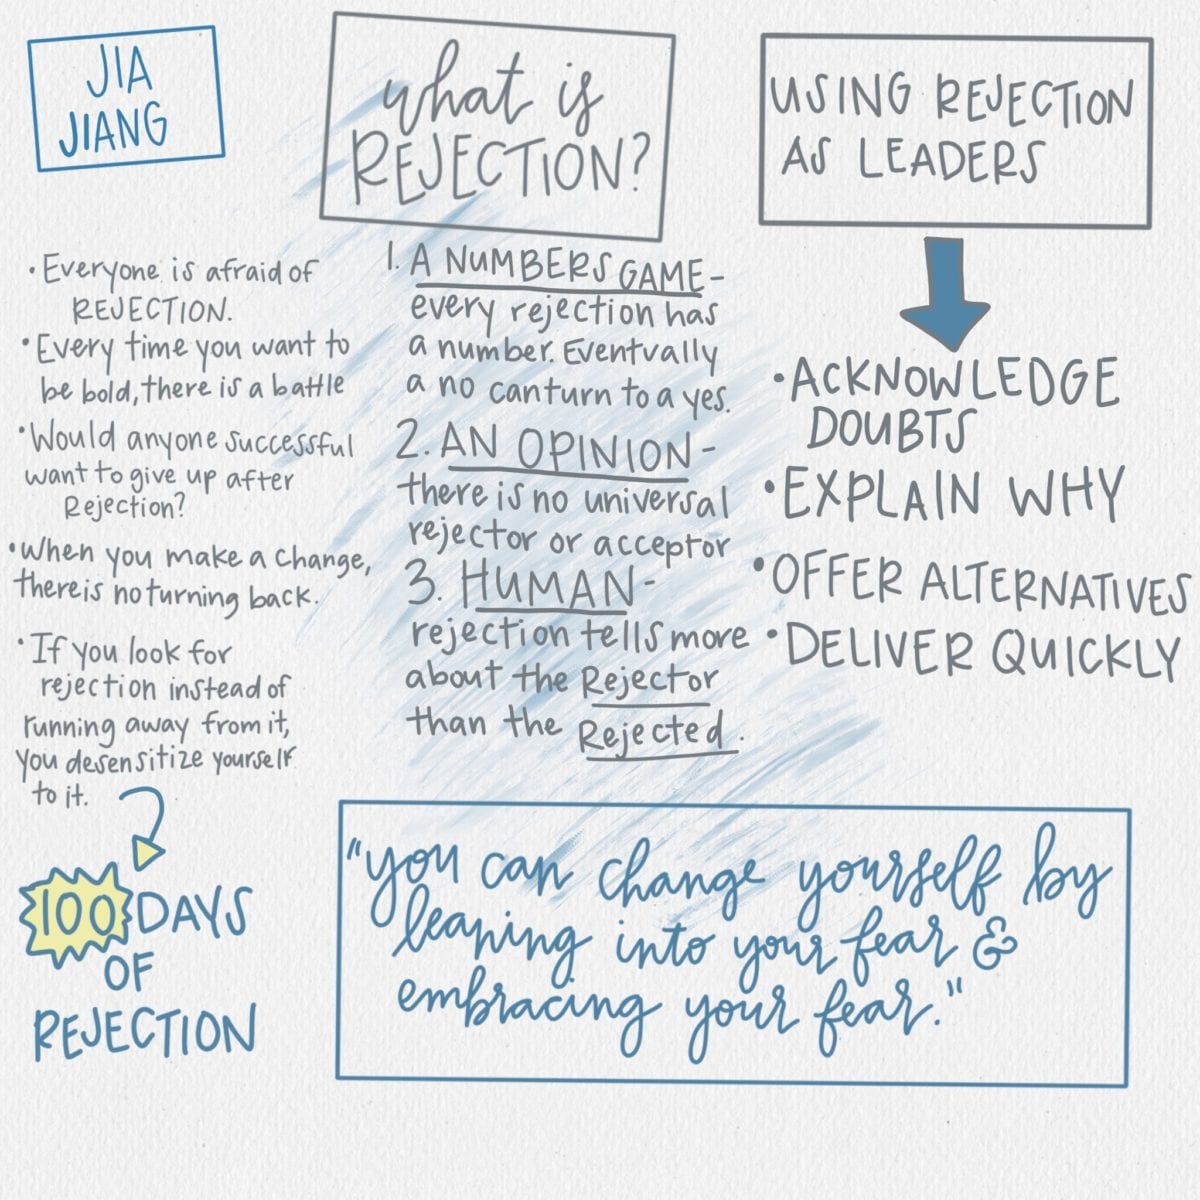 JIA
JIANG
• Everyone is afraid of
REJECTION.
• Every time you want to
be bold, there is a battle
• Would anyone successful
want to give up after
Rejection?
• When you make a change,
there is no turning back.
• If you look for
rejection instead of
running away from it,
you desensitize yourself
to it.
100 DAYS
OF
REJECTION
what is
REJECTION?
1. A NUMBERS GAME -
every rejection has
a number. Eventually
a no can turn to a yes.
2. AN OPINION -
there is no universal
rejector or acceptor
3. HUMAN -
rejection tells more
about the Rejector
than the Rejected.
USING REJECTION
AS LEADERS
• ACKNOWLEDGE
DOUBTS
• EXPLAIN WHY
• OFFER ALTERNATIVES
• DELIVER QUICKLY
"you can change yourself by
leaning into your fear &
embracing your fear."